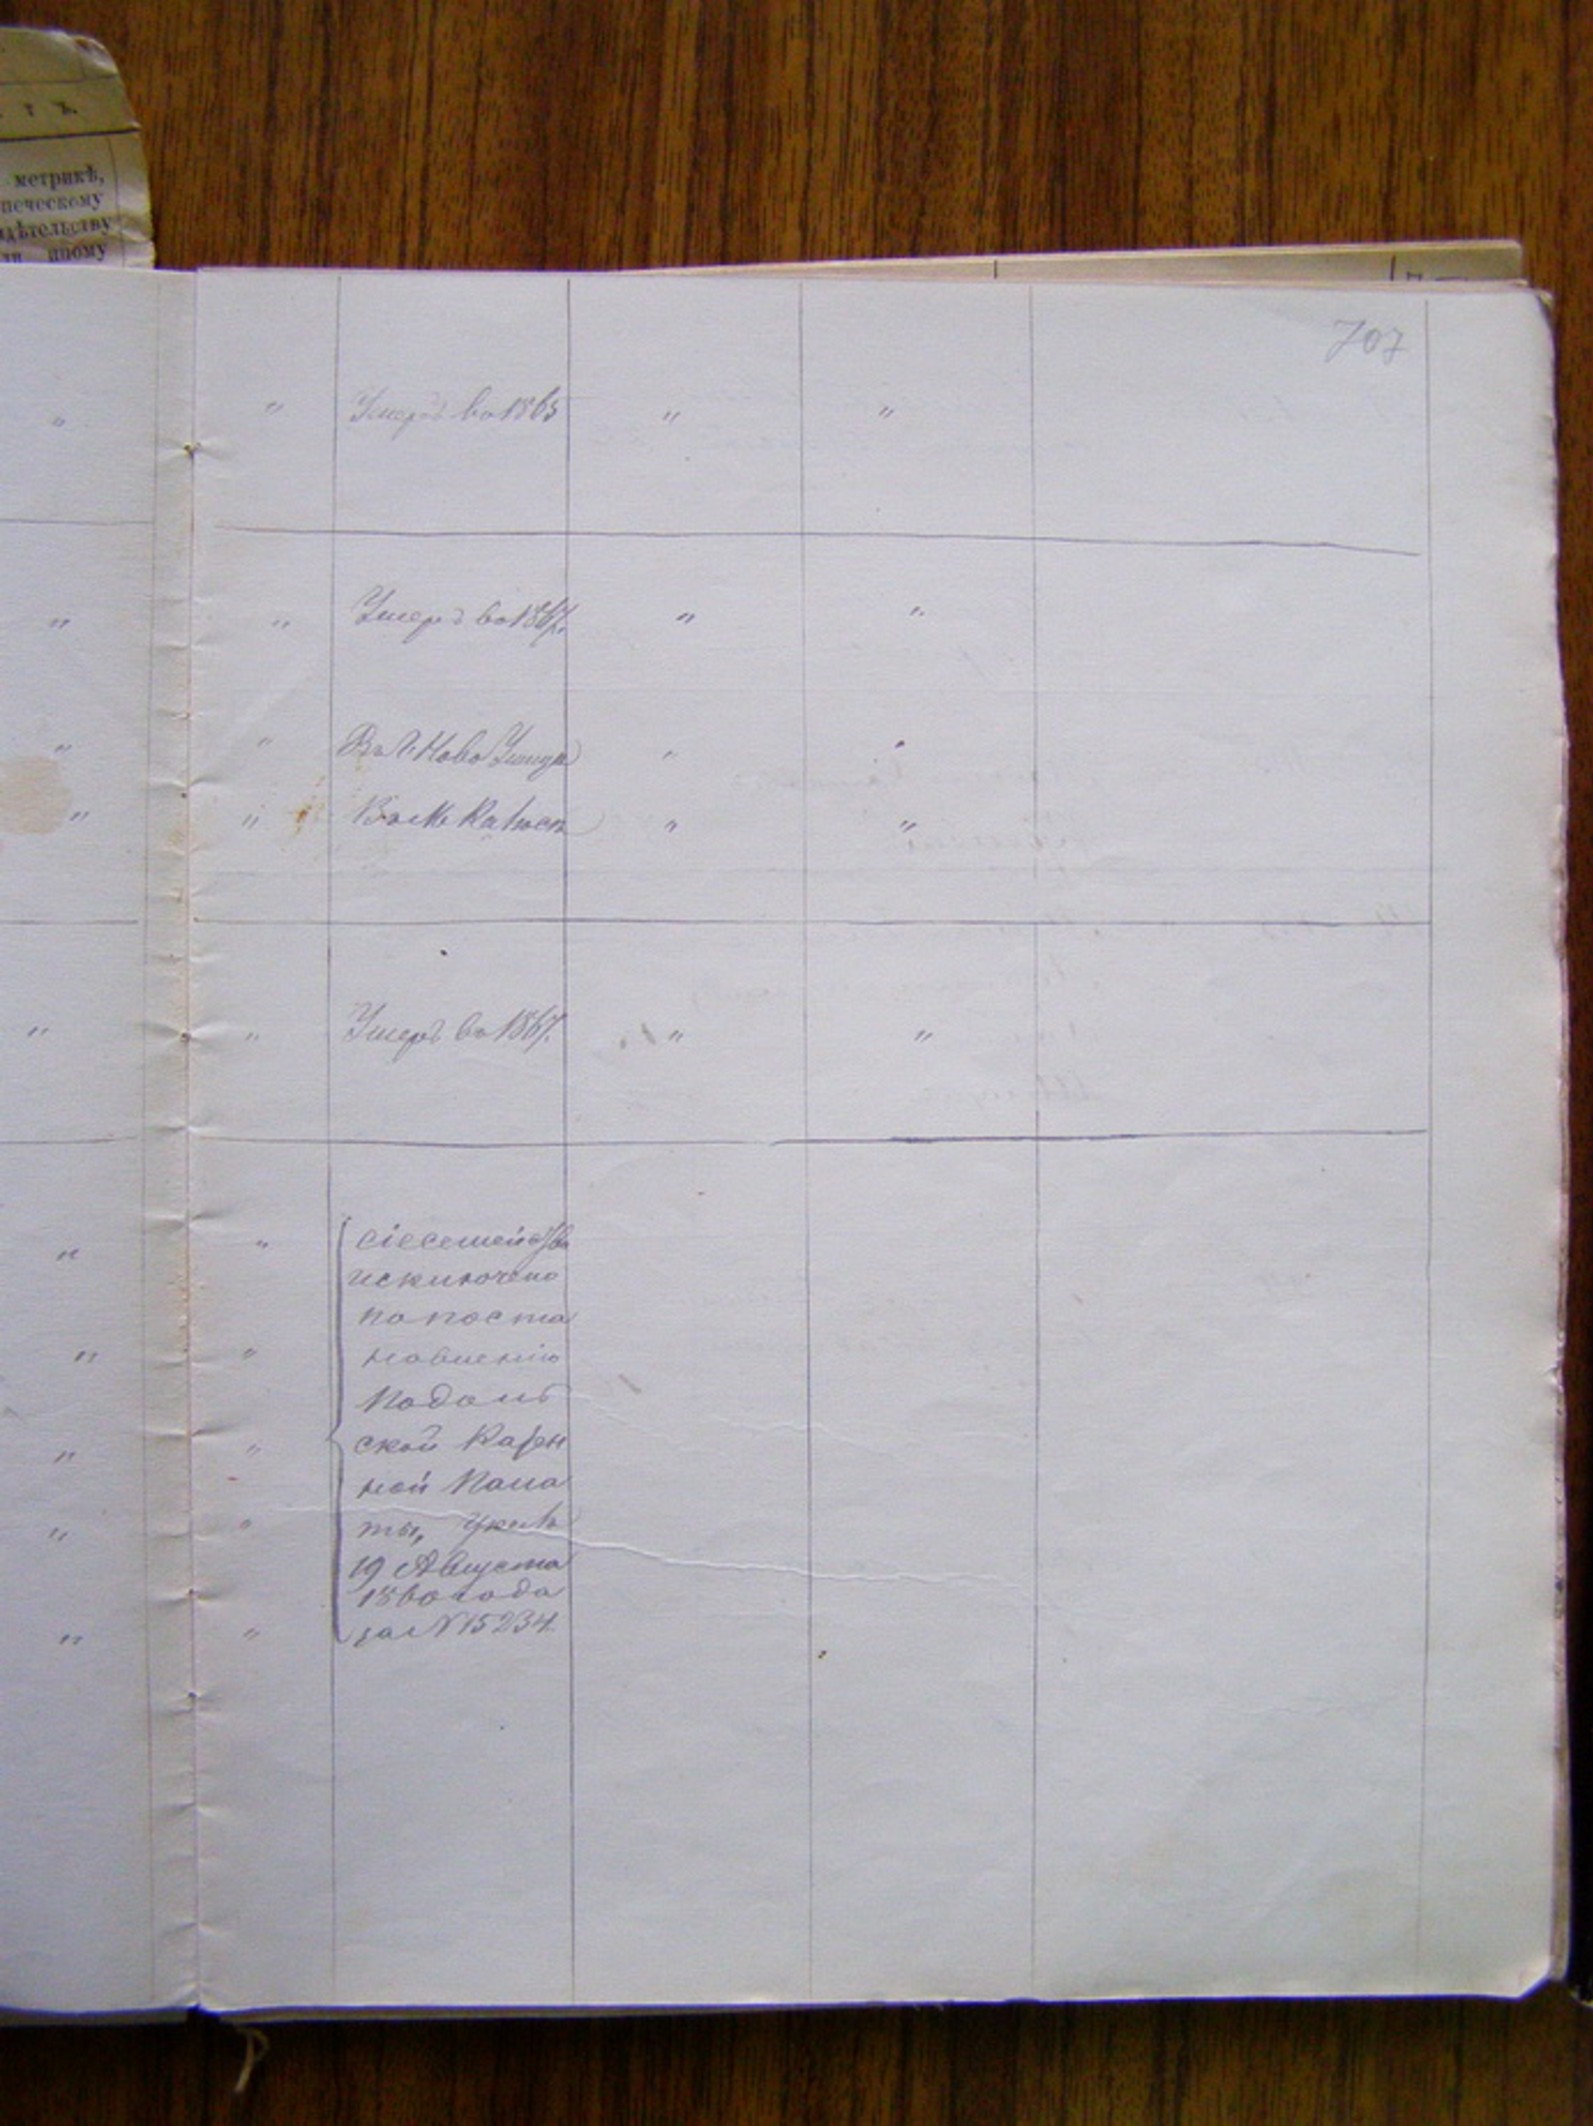 метрикѣ,
707
Умеръ въ 1865
Умеръ въ 1867.
Въ г. Ново Ушиц
Въ м. Калюсъ
Умеръ въ 1867.
сіе семейство
исключено
по поста
новленію
Подоль
ской Казен
ной Пала
ты, Указъ
19 Августа
1860 года
за № 15234.